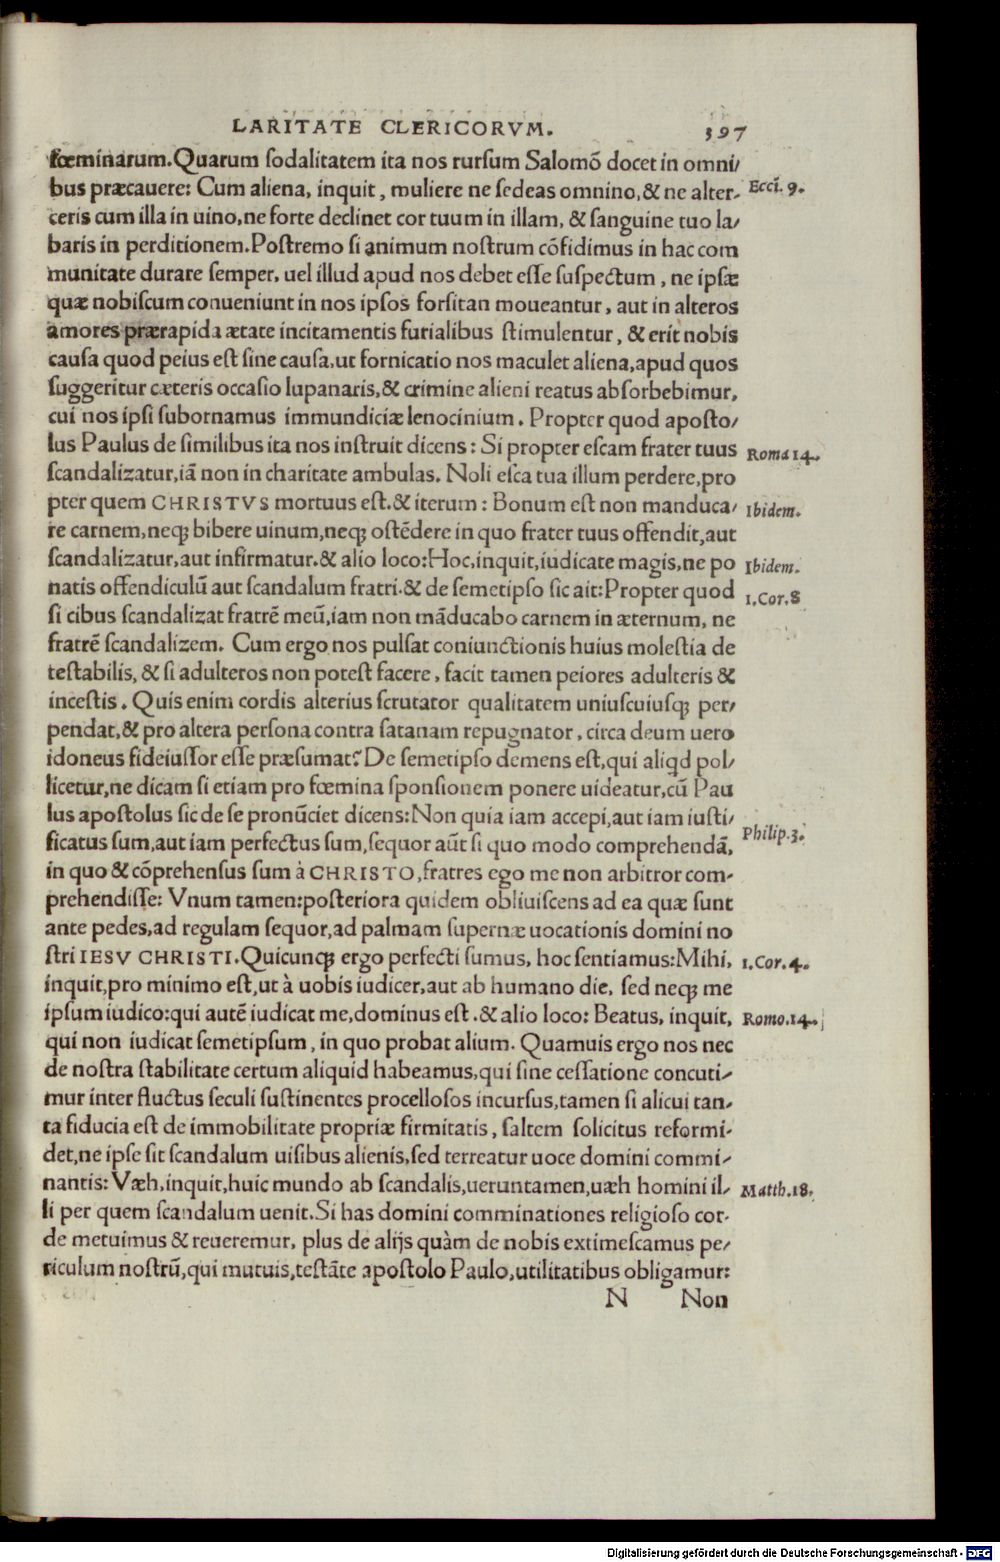 LARITATE CLERICORVM. 397
fœminarum. Quarum sodalitatem ita nos rursum Salomō docet in omni/
bus præcauere: Cum aliena, inquit, muliere ne sedeas omnino, & ne alter-
Eccī. 9.
ceris cum illa in uino, ne forte declinet cor tuum in illam, & sanguine tuo la/
baris in perditionem. Postremo si animum nostrum cōfidimus in hac com
munitate durare semper, uel illud apud nos debet esse suspectum, ne ipsæ
quæ nobiscum conueniunt in nos ipsos forsitan moueantur, aut in alteros
amores prærapida ætate incitamentis furialibus stimulentur, & erit nobis
causa quod peius est sine causa, ut fornicatio nos maculet aliena, apud quos
suggeritur cæteris occasio lupanaris, & crimine alieni reatus absorbebimur,
cui nos ipsi subornamus immundiciæ lenocinium. Propter quod aposto/
lus Paulus de similibus ita nos instruit dicens: Si propter escam frater tuus
Roma 14.
scandalizatur, iā non in charitate ambulas. Noli esca tua illum perdere, pro
pter quem CHRISTVS mortuus est. & iterum: Bonum est non manduca/
Ibidem.
re carnem, neq; bibere uinum, neq; ostēdere in quo frater tuus offendit, aut
scandalizatur, aut infirmatur. & alio loco: Hoc, inquit, iudicate magis, ne po
Ibidem.
natis offendiculū aut scandalum fratri. & de semetipso sic ait: Propter quod
1. Cor. 8
si cibus scandalizat fratrē meū, iam non māducabo carnem in æternum, ne
fratrē scandalizem. Cum ergo nos pulsat coniunctionis huius molestia de
testabilis, & si adulteros non potest facere, facit tamen peiores adulteris &
incestis. Quis enim cordis alterius scrutator qualitatem uniuscuiusq; per/
pendat, & pro altera persona contra satanam repugnator, circa deum uero
idoneus fideiussor esse præsumat? De semetipso demens est, qui aliqd pol/
licetur, ne dicam si etiam pro fœmina sponsionem ponere uideatur, cū Pau
lus apostolus sic de se pronūciet dicens: Non quia iam accepi, aut iam iusti/
ficatus sum, aut iam perfectus sum, sequor aūt si quo modo comprehendā,
Philip. 3.
in quo & cōprehensus sum à CHRISTO, fratres ego me non arbitror com-
prehendisse: Vnum tamen: posteriora quidem obliuiscens ad ea quæ sunt
ante pedes, ad regulam sequor, ad palmam supernæ uocationis domini no
stri IESV CHRISTI. Quicunq; ergo perfecti sumus, hoc sentiamus: Mihi,
1. Cor. 4.
inquit, pro minimo est, ut à uobis iudicer, aut ab humano die, sed neq; me
ipsum iudico: qui autē iudicat me, dominus est. & alio loco: Beatus, inquit,
Romo. 14.
qui non iudicat semetipsum, in quo probat alium. Quamuis ergo nos nec
de nostra stabilitate certum aliquid habeamus, qui sine cessatione concuti/
mur inter fluctus seculi sustinentes procellosos incursus, tamen si alicui tan-
ta fiducia est de immobilitate propriæ firmitatis, saltem solicitus reformi-
det, ne ipse sit scandalum uisibus alienis, sed terreatur uoce domini commi/
nantis: Væh, inquit, huic mundo ab scandalis, ueruntamen, uæh homini il/
Matth. 18.
li per quem scandalum uenit. Si has domini comminationes religioso cor-
de metuimus & reueremur, plus de alijs quàm de nobis extimescamus pe/
riculum nostrū, qui mutuis, testāte apostolo Paulo, utilitatibus obligamur:
N Non
Digitalisierung gefördert durch die Deutsche Forschungsgemeinschaft - DFG